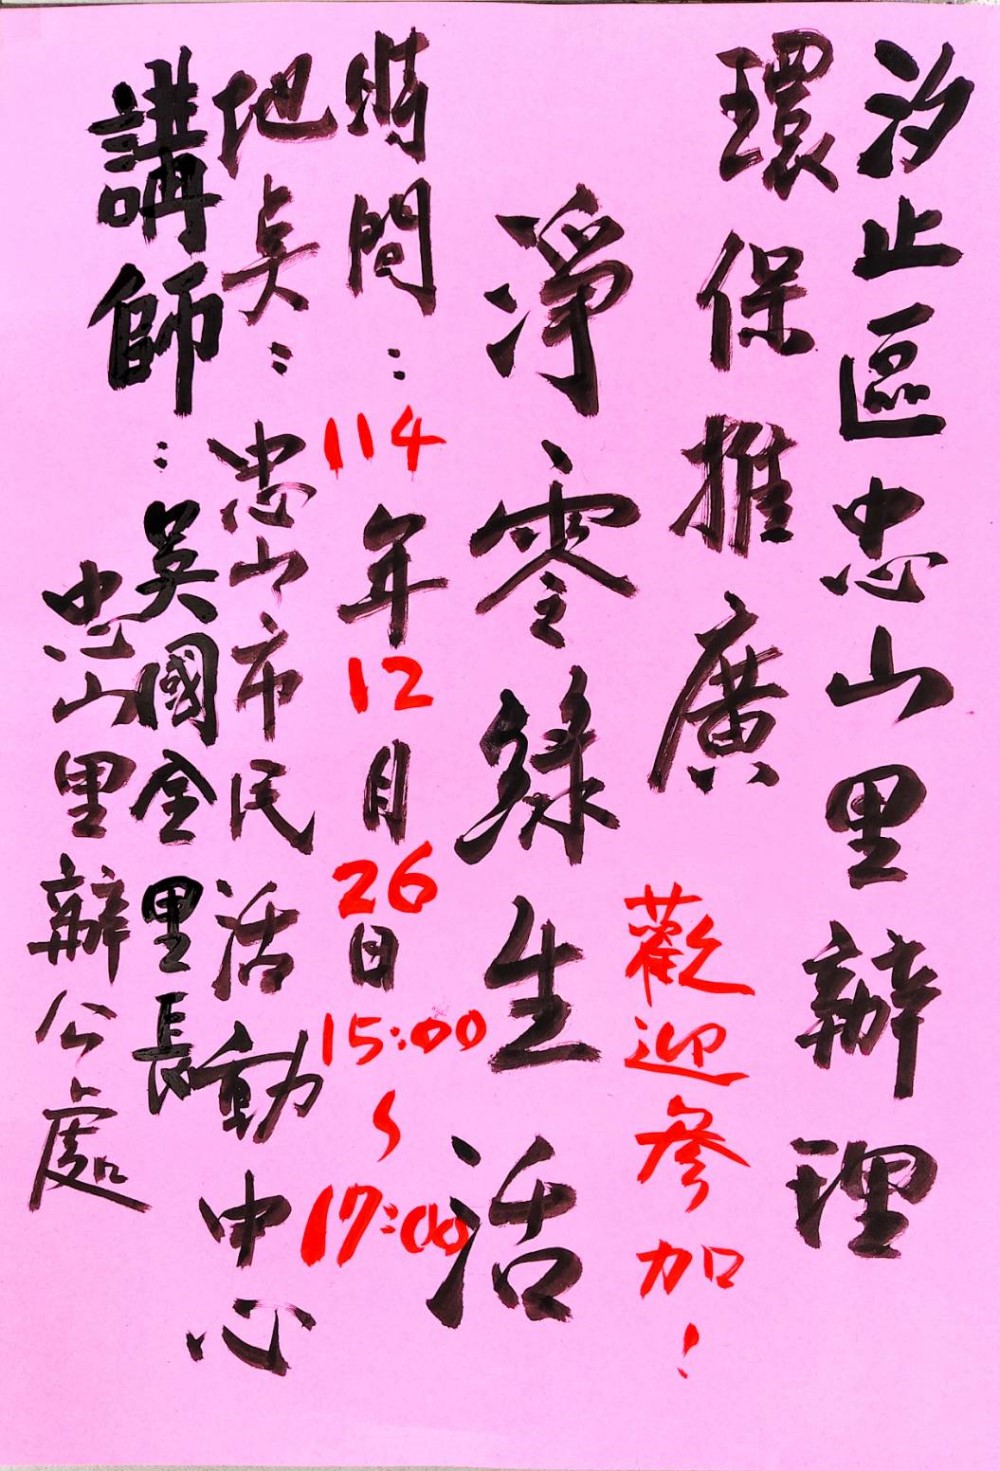 汐止區忠山里辦理
環保推廣
歡迎參加!
淨零綠生活
時間:114年12月26日15:00~17:00
地點:忠山市民活動中心
講師:吳國金里長
忠山里辦公處